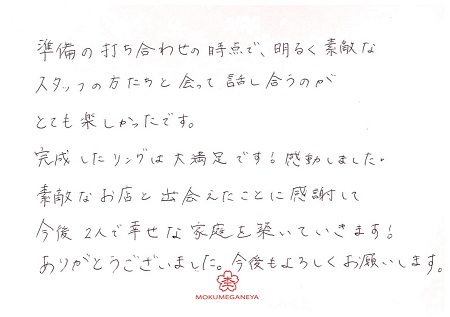 準備の打ち合わせの時点で、明るく素敵な
スタッフの方たちと会って話し合うのが
とても楽しかったです。
完成したリングは大満足です!感動しました。
素敵なお店と出会えたことに感謝して
今後2人で幸せな家庭を築いていきます!
ありがとうございました。今後もよろしくお願いします。
MOKUMEGANEYA